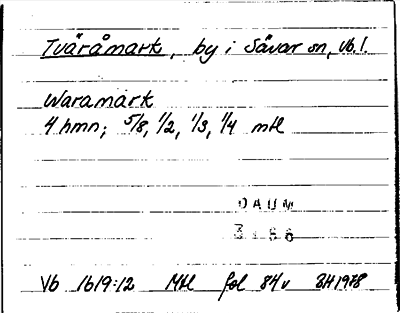 Tväråmark, by i Sävar sn, Vb. l.
Waramark
4 hmn; 5/8, 1/2, 1/3, 1/4 mtl
DAUM
Vb 1619:12 Mtl fol 84v 3H1978